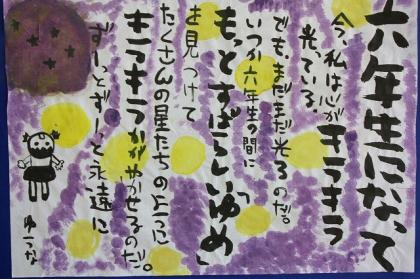 六年生になって
今、私は心がキラキラ
光っている。
でも、まだまだ光るのだ。
いつか六年生の間に
もっとすばらしい「ゆめ」
を見つけて
たくさんの星たちのように
キラキラかがやかせるのだ。
ずーっとずーっと永遠に
ゆうな